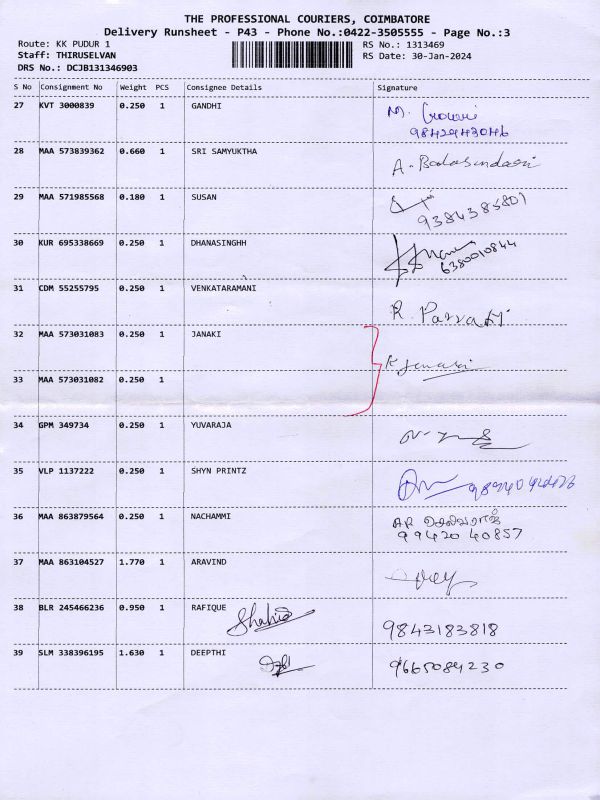 THE PROFESSIONAL COURIERS, COIMBATORE
Delivery Runsheet - P43 - Phone No.:0422-3505555 - Page No.:3
Route: KK PUDUR 1 RS No.: 1313469
Staff: THIRUSELVAN RS Date: 30-Jan-2024
DRS No.: DCJB131346903
S No Consignment No Weight PCS Consignee Details Signature
27 KVT 3000839 0.250 1 GANDHI M. Gowri
9842943046
28 MAA 573839362 0.660 1 SRI SAMYUKTHA A. Balasundari
29 MAA 571985568 0.180 1 SUSAN
9384385801
30 KUR 695338669 0.250 1 DHANASINGHH
6380010844
31 CDM 55255795 0.250 1 VENKATARAMANI R. Parvati
32 MAA 573031083 0.250 1 JANAKI K Janaki
33 MAA 573031082 0.250 1
34 GPM 349734 0.250 1 YUVARAJA
35 VLP 1137222 0.250 1 SHYN PRINTZ
36 MAA 863879564 0.250 1 NACHAMMI AR செல்வராஜ்
99420 40857
37 MAA 863104527 1.770 1 ARAVIND
38 BLR 245466236 0.950 1 RAFIQUE 9843183818
39 SLM 338396195 1.630 1 DEEPTHI 9665084230